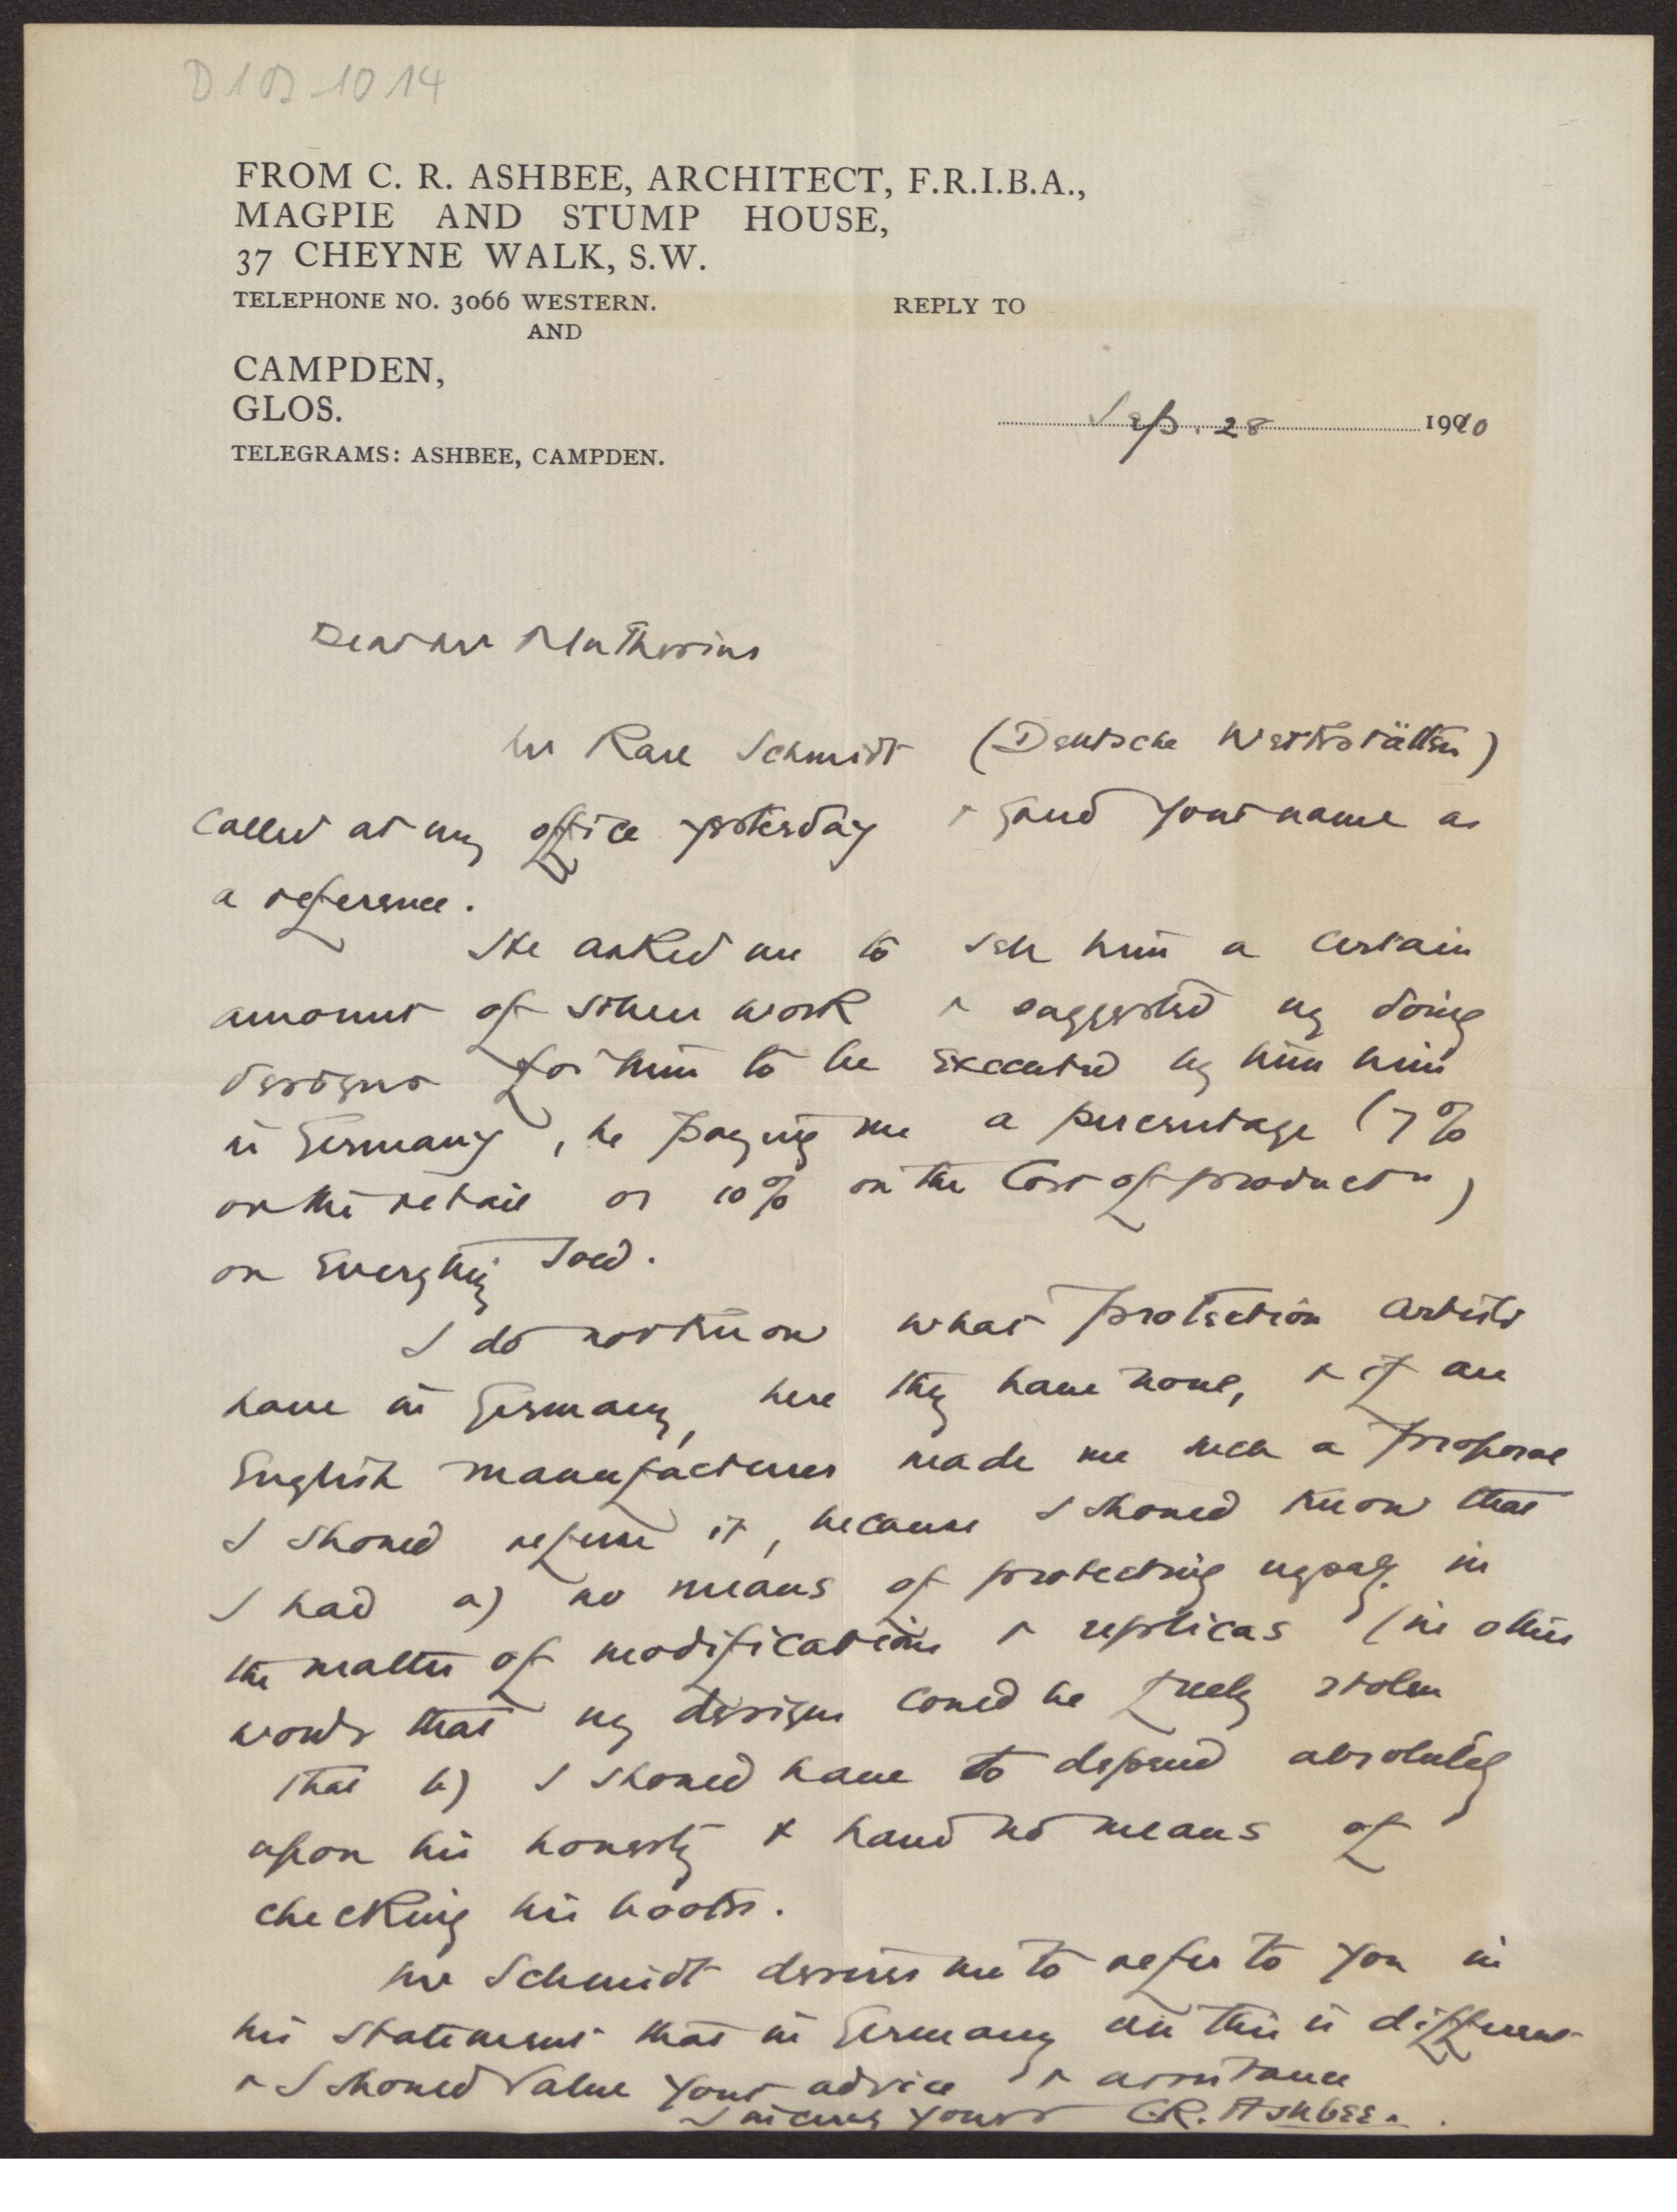 D 102 10 14
FROM C. R. ASHBEE, ARCHITECT, F.R.I.B.A.,
MAGPIE AND STUMP HOUSE,
37 CHEYNE WALK, S.W.
TELEPHONE NO. 3066 WESTERN. REPLY TO
AND
CAMPDEN,
GLOS.
TELEGRAMS: ASHBEE, CAMPDEN.
Sep. 28 1910
Dear Mr Muthesius
Mr Karl Schmidt (Deutsche Werkstätten)
called at my office yesterday & gave your name as
a reference.
He asked me to sell him a certain
amount of silver work & suggested my doing
designs for him to be executed by him him
in Germany, he paying me a percentage (7%
on the retail or 10% on the Cost of productn)
on Everything sold.
I do not know what protection artists
have in Germany, here they have none, & if an
English manufacturer made me such a proposal
I should refuse it, because I should know that
I had a) no means of protecting myself in
the matter of modifications & replicas (in other
words that my designs could be freely stolen
that b) I should have to depend absolutely
upon his honesty & have no means of
checking his books.
Mr Schmidt desires me to refer to you in
his statement that in Germany all this is different
& I should value your advice & assistance
Sincerely yours C.R. Ashbee.